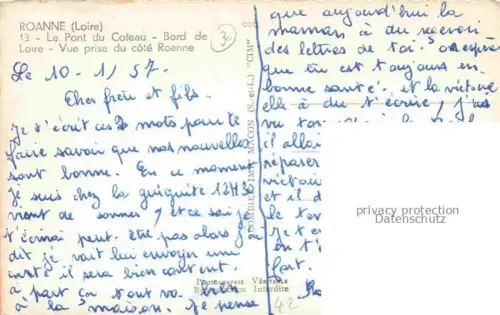 ROANNE (Loire)
13 - Le Pont du Coteau - Bord de
Loire - Vue prise du côté Roanne
30
Le 10-1/57.
Cher frère et fils.
Je t'écrit ces 2 mots pour te
faire savoir que nos nouvelles
sont bonne. En ce moment
je suis chez la guiguite 12H30
vient de sonner, et ce soir je
t'écrirai peut être pas alors
dit je vait lui envoyer une
carte il sera bien content.
à part ça tout va bien
à la "maison. Je pense
que aujourd'hui la
maman à du recevoir
des lettres de toi. on espère
que tu est toujours en
bonne santé. et la victoire
elle à du t'écrire, j'ai
vu ton
il allai
réparer
victoir
et il d
le tor
Je te
en t'
fait.
COMBIER IMP. MACON (S.-et-L.) "CIM"
PHOTOGRAPHIE VÉRITABLE
Reproduction Interdite
42
privacy protection
Datenschutz